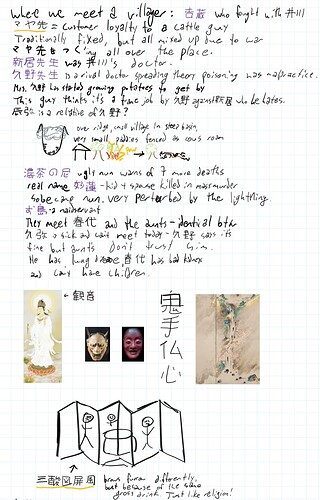 when we meet a villager: 吉蔵 who fought with #111
マヤ先 = customer loyalty to a cattle guy
Traditionally fixed, but all mixed up due to war
マヤ先つくing all over the place.
新居先生 was #111's doctor.
久野先生 is a rival doctor spreading theory poisoning was malpractice.
Mrs. 久野 has started growing potatoes to get by
This guy thinks it's a frame job by 久野 against 新居 who he hates.
辰弥 is a relative of 久野?
over ridge, small village in steep basin,
very small paddies fenced as cows roam
濃茶の尼 ugly nun warns of 7 more deaths
real name 妙蓮 - kid + spouse killed in mass murder
so became nun. very perturbed by the lightning.
お島: a maidservant
They meet 春代 and the aunts - identical btw
久弥 is sick and can't meet today - 久野 says its
fine but aunts don't trust him.
He has lung disease 春代 has bad kidneys
and can't have children.
← 観音
鬼手仏心
三酸図屏風
brows furrow differently,
but because of the same
gross drink. Just like religion!